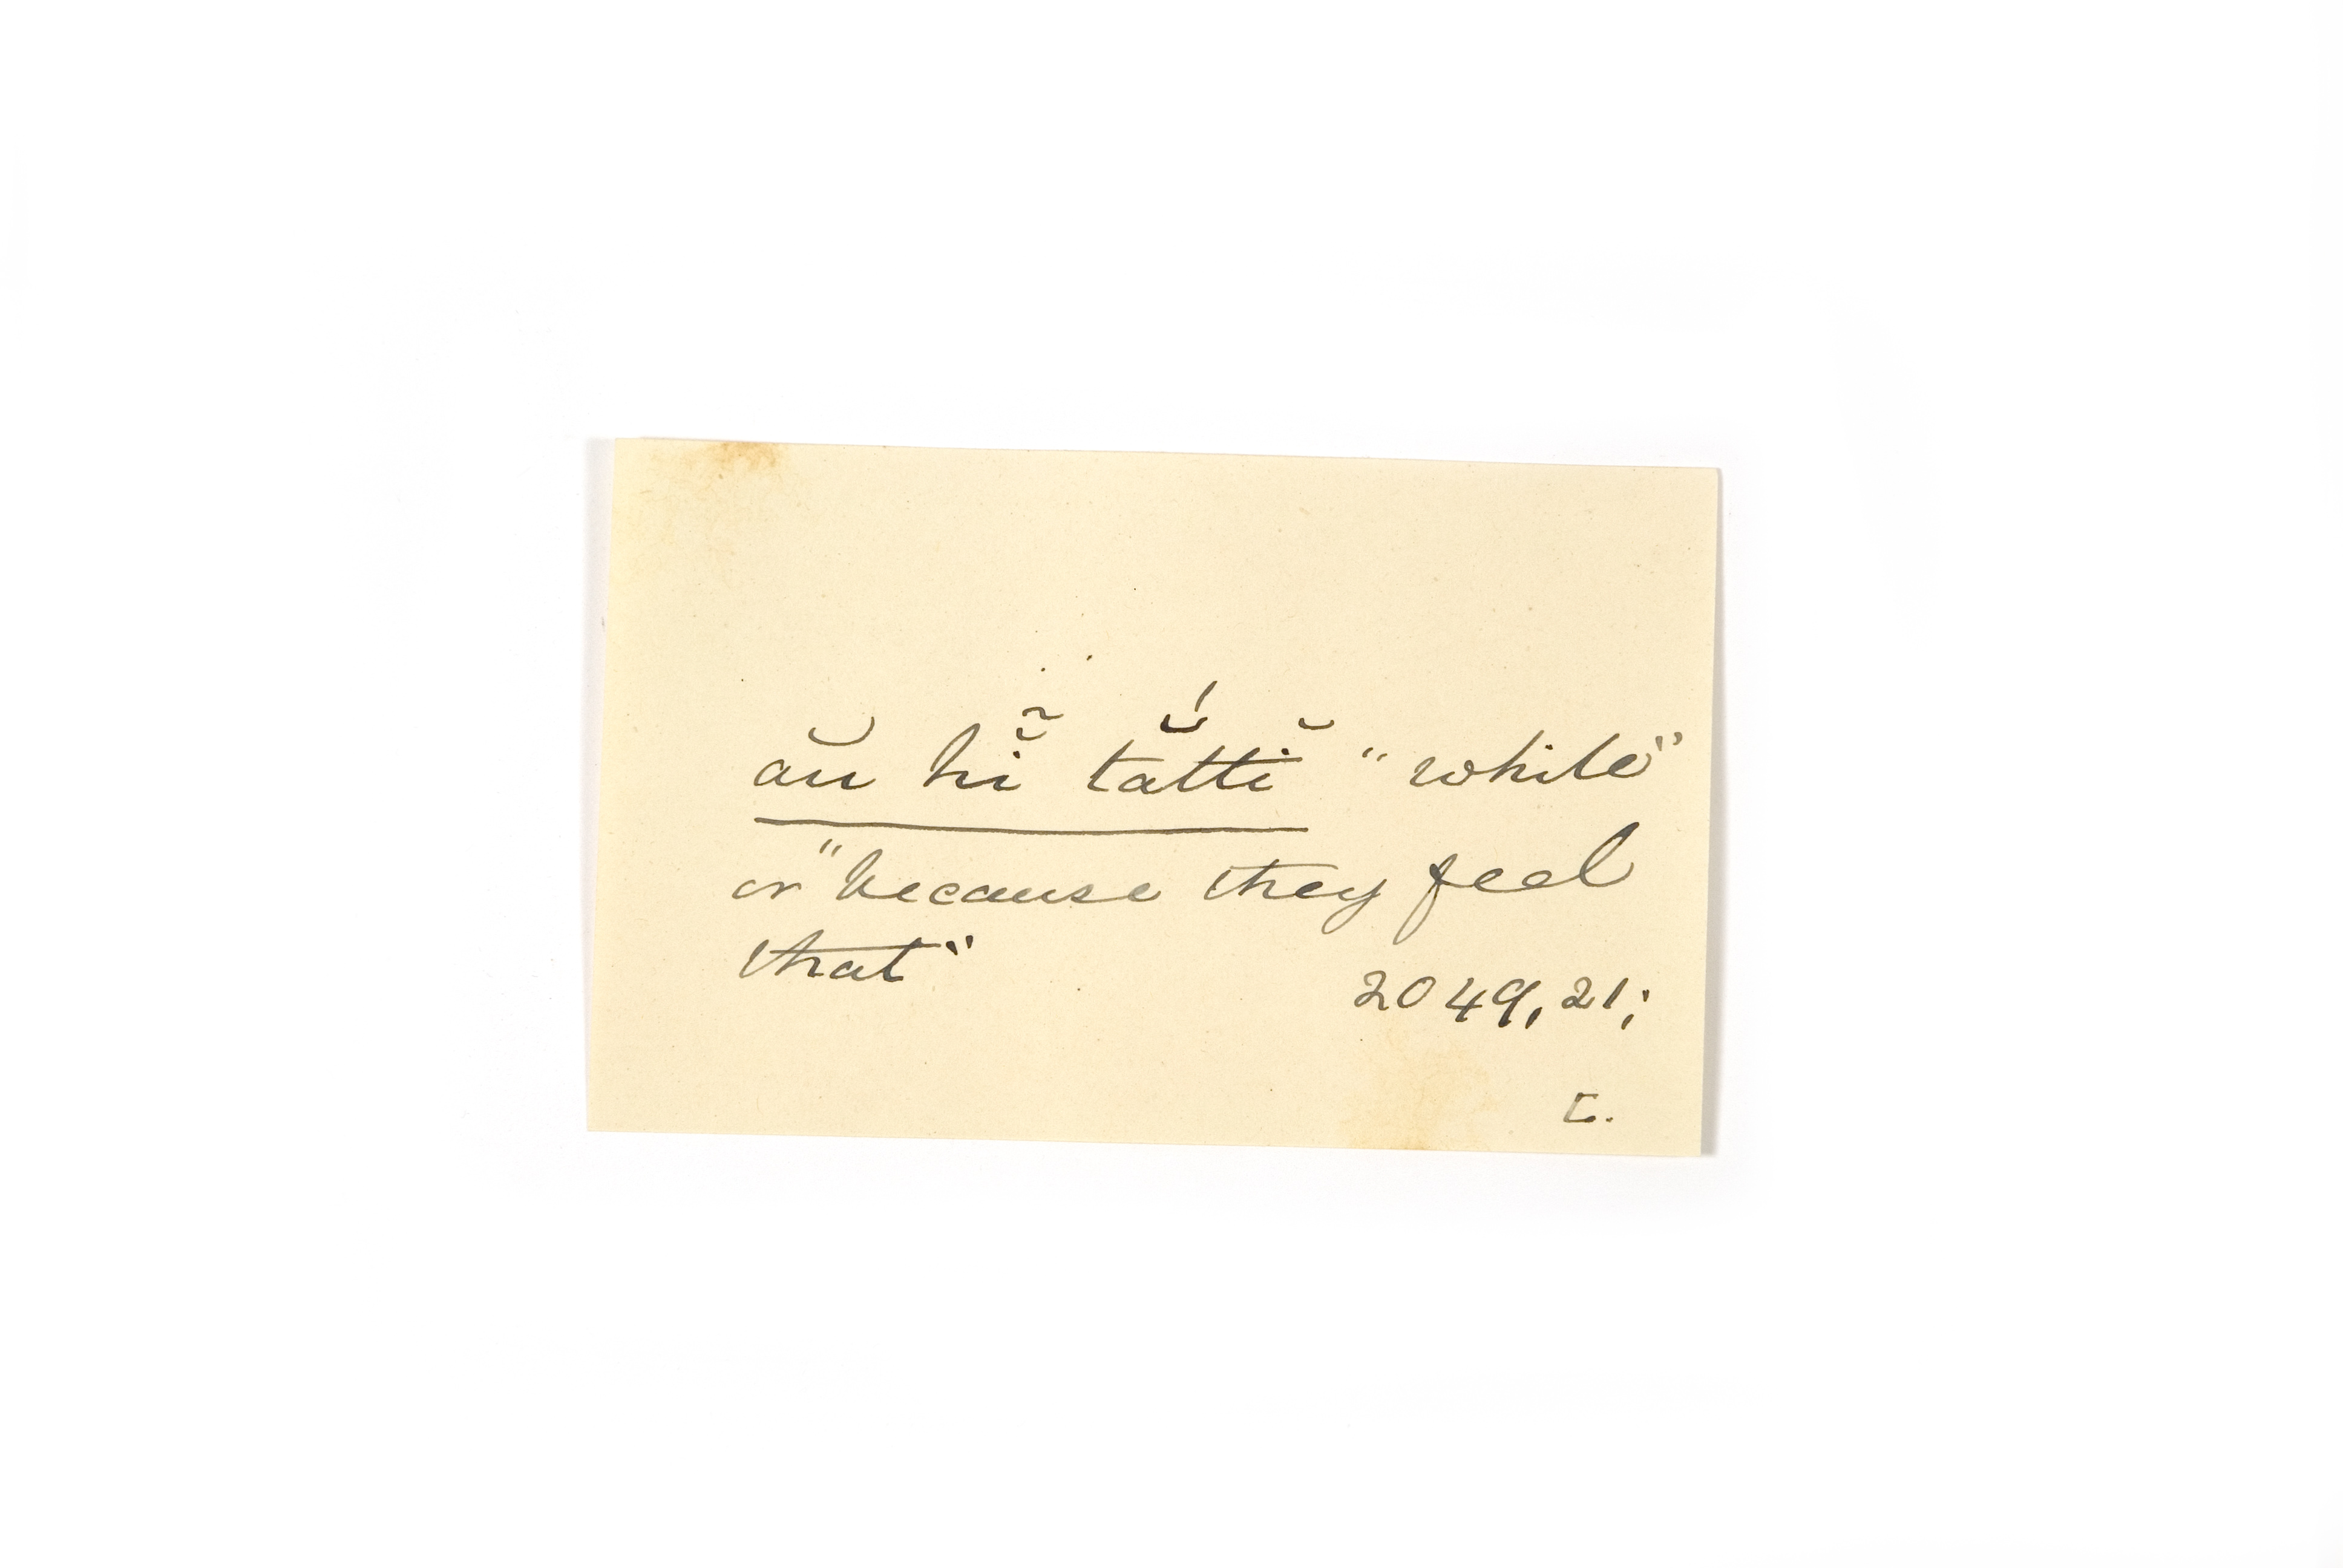 aŭ hĭ̃ tắttĭ "while"
or "because they feel
that"
2049, 21;
C.